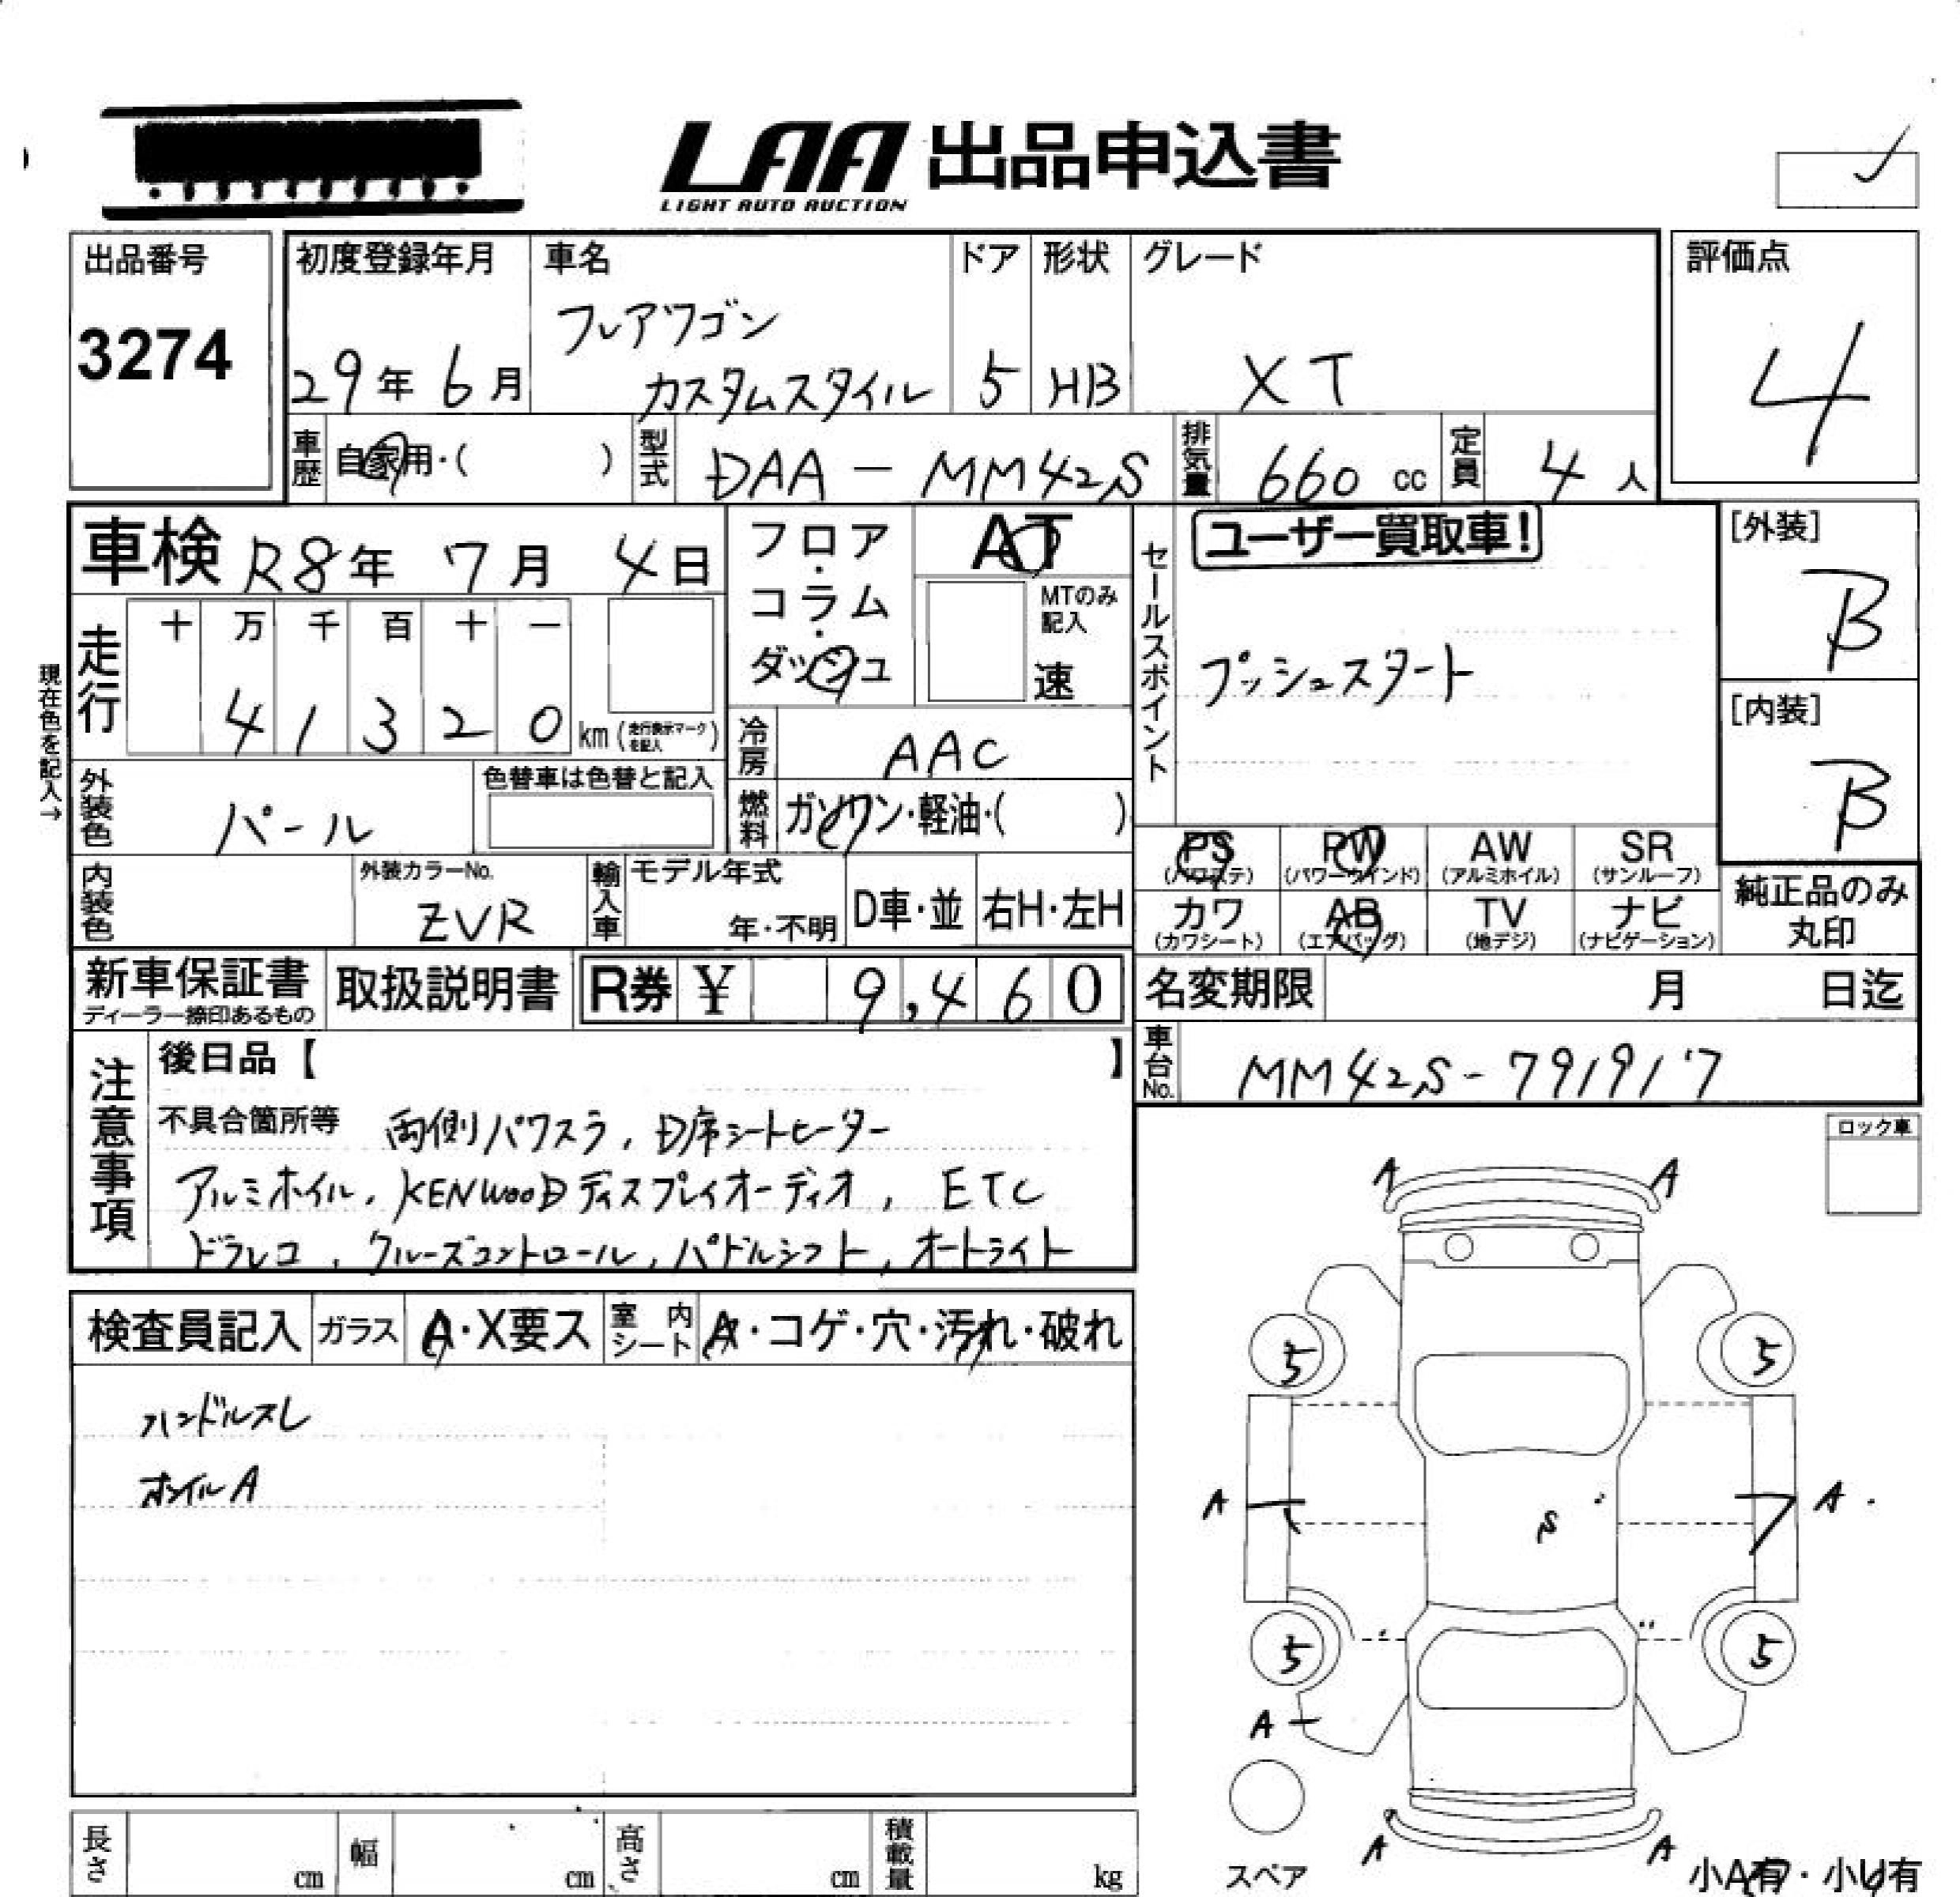 LAA 出品申込書
LIGHT AUTO AUCTION
出品番号
3274
初度登録年月
29年6月
車名
フレアワゴン
カスタムスタイル
ドア
5
形状
HB
グレード
XT
評価点
4
車歴
自家用・( )
型式
DAA-MM42S
排気量
660cc
定員
4人
車検 R8年 7月 4日
走行
十 万 千 百 十 一
4 1 3 2 0 km(走行表示マークを記入)
現在色を記入→
フロア・コラム・ダッシュ
AT
MTのみ記入
速
冷房
AAC
燃料
ガソリン・軽油・( )
セールスポイント
ユーザー買取車!
プッシュスタート
[外装]
B
[内装]
B
外装色
パール
色替車は色替と記入
内装色
外装カラーNo.
ZVR
輸入車
モデル年式
年・不明
D車・並
右H・左H
PS
(パワステ)
PW
(パワーウインド)
AW
(アルミホイル)
SR
(サンルーフ)
カワ
(カワシート)
AB
(エアバッグ)
TV
(地デジ)
ナビ
(ナビゲーション)
純正品のみ
丸印
新車保証書
ディーラー捺印あるもの
取扱説明書
R券 ¥ 9,460
名変期限 月 日迄
車台No.
MM42S-791917
注意事項
後日品【 】
不具合箇所等 両側パワスラ, D席シートヒーター
アルミホイル, KENWOODディスプレイオーディオ, ETC
ドラレコ, クルーズコントロール, パドルシフト, オートライト
ロック車
検査員記入
ガラス
A・X要ス
室内シート
A・コゲ・穴・汚れ・破れ
ハンドルスレ
ホイルA
A A
5 5
A S A
5 5
A
A A
スペア
小A有・小U有
長さ cm
幅 cm
高さ cm
積載量 kg